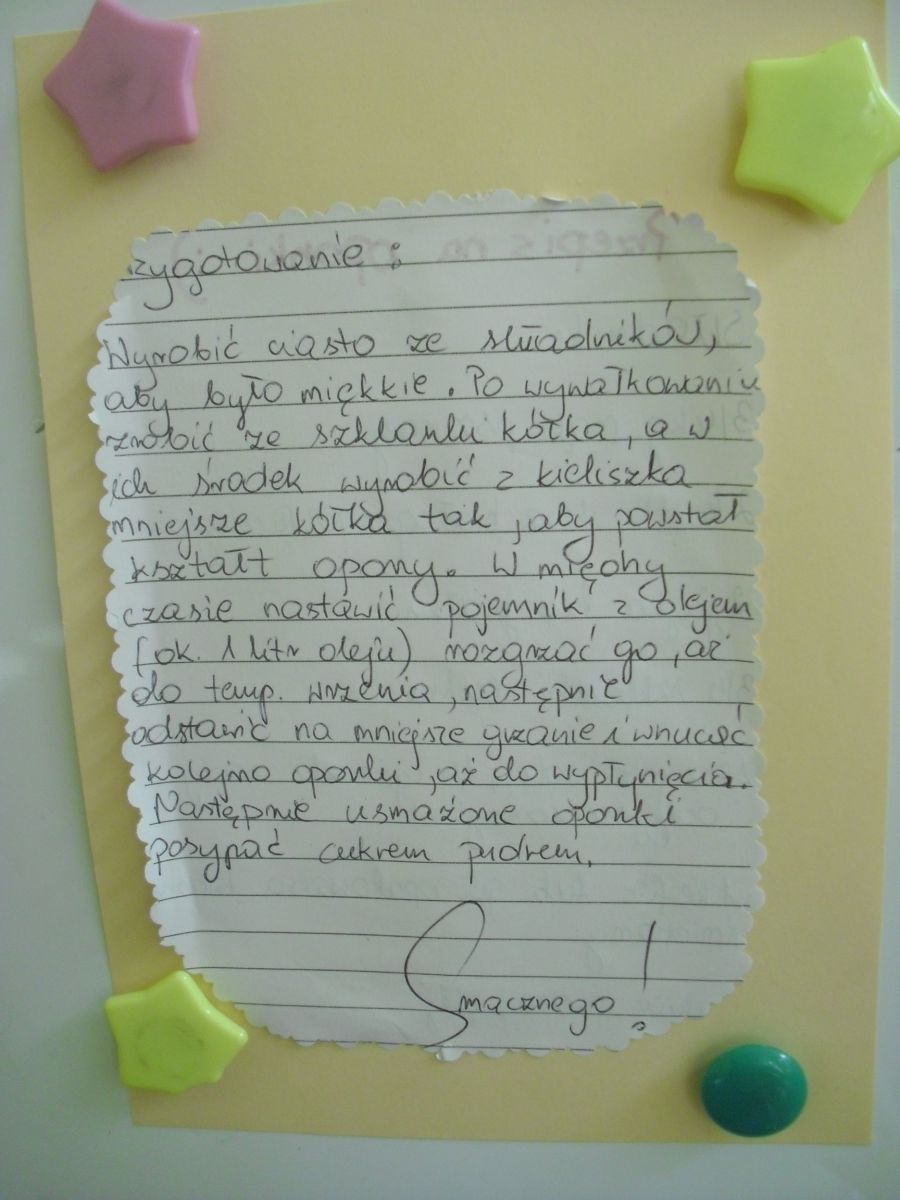 zygotowanie:
Wyrobić ciasto ze składników,
aby było miękkie. Po wywałkowaniu
zrobić ze szklanki kółka, a w
ich środek wyrobić z kieliszka
mniejsze kółka tak, aby powstał
kształt opony. W między
czasie nastawić pojemnik z olejem
(ok. 1 litr oleju) rozgrzać go, aż
do temp. wrzenia, następnie
odstawić na mniejsze grzanie i wrzucać
kolejno oponki, aż do wypłynięcia.
Następnie usmażone oponki
posypać cukrem pudrem.
Smacznego!